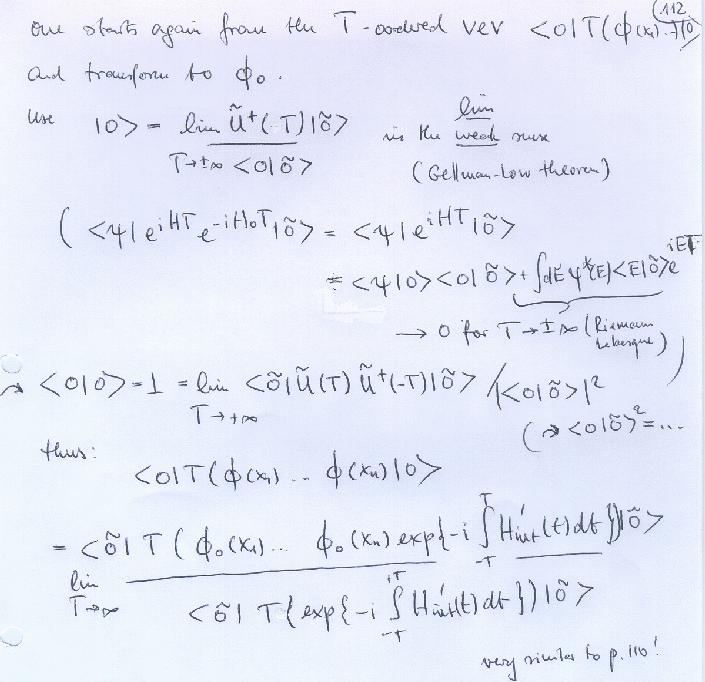 112
one starts again from the T-ordered vev <0|T(ϕ(x₁)...)|0>
and transform to ϕ₀.
Use |0> = lim Ũ⁺(-T)|õ> / <0|õ> T→±∞ lim in the weak sense
(Gellman-Low theorem)
( <ψ|e^{iHT} e^{-iH₀T}|õ> = <ψ|e^{iHT}|õ>
= <ψ|0><0|õ> + ∫dE ψ*(E)<E|õ>e^{iET}
→ 0 for T→±∞ (Riemann Lebesgue) )
→ <0|0> = 1 = lim <õ|Ũ(T) Ũ⁺(-T)|õ> / |<0|õ>|²
T→+∞
(→ <0|õ>² = ...
thus:
<0|T(ϕ(x₁) ... ϕ(xₙ)|0>
= <õ| T ( ϕ₀(x₁)... ϕ₀(xₙ) exp{-i ∫_{-T}^{T} H'int(t)dt})|õ>
lim T→∞
<õ| T{exp{-i ∫_{-T}^{+T} H'int(t)dt})|õ>
very similar to p. 110!